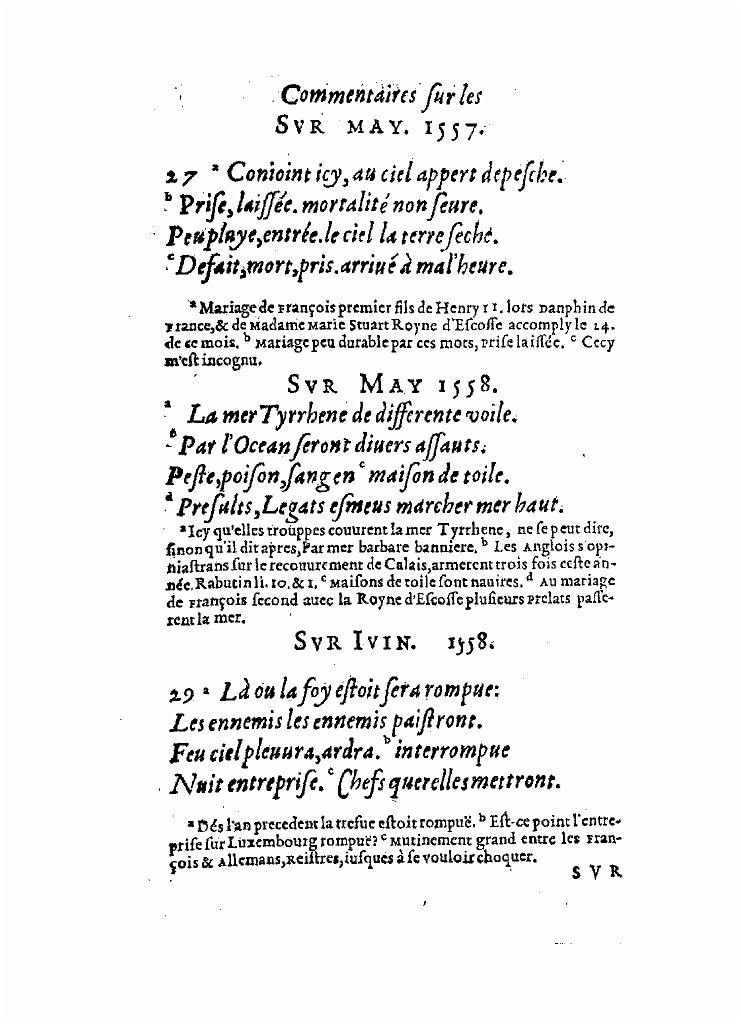 Commentaires ſur les
SVR MAY. 1557.
27 ᵃ Conioint icy, au ciel appert depeſche.
ᵇ Priſe, laiſſée. mortalité non ſeure.
Peu pluye, entrée. le ciel la terre ſeche.
ᶜ Defait, mort, pris. arriué à mal'heure.
ᵃ Mariage de François premier fils de Henry II. lors Dauphin de
France, & de Madame Marie Stuart Royne d'Eſcoſſe accomply le 24.
de ce mois. ᵇ Mariage peu durable par ces mots, Priſe laiſſée. ᶜ Cecy
m'eſt incognu.
SVR MAY 1558.
ᵃ La mer Tyrrhene de differente voile.
ᵇ Par l'Ocean ſeront diuers aſſauts.
Peſte, poiſon, ſang en ᶜ maiſon de toile.
ᵈ Preſults, Legats eſmeus marcher mer haut.
ᵃ Icy qu'elles trouppes couurent la mer Tyrrhene, ne ſe peut dire,
ſinon qu'il dit apres, Par mer barbare banniere. ᵇ Les Anglois s'opi-
niaſtrans ſur le recouurement de Calais, armerent trois fois ceſte an-
née. Rabutin li. 10. & 1. ᶜ Maiſons de toile ſont nauires. ᵈ Au mariage
de François ſecond auec la Royne d'Eſcoſſe pluſieurs Prelats paſſe-
rent la mer.
SVR IVIN. 1558.
29 ᵃ Là ou la foy eſtoit ſera rompue:
Les ennemis les ennemis paiſtront.
Feu ciel pleuura, ardra. ᵇ interrompue
Nuit entrepriſe. ᶜ Chefs querelles mettront.
ᵃ Dés l'an precedent la treſue eſtoit rompuë. ᵇ Eſt-ce point l'entre-
priſe ſur Luxembourg rompuë? ᶜ Mutinement grand entre les Fran-
çois & Allemans, Reiſtres, iuſques à ſe vouloir choquer.
SVR